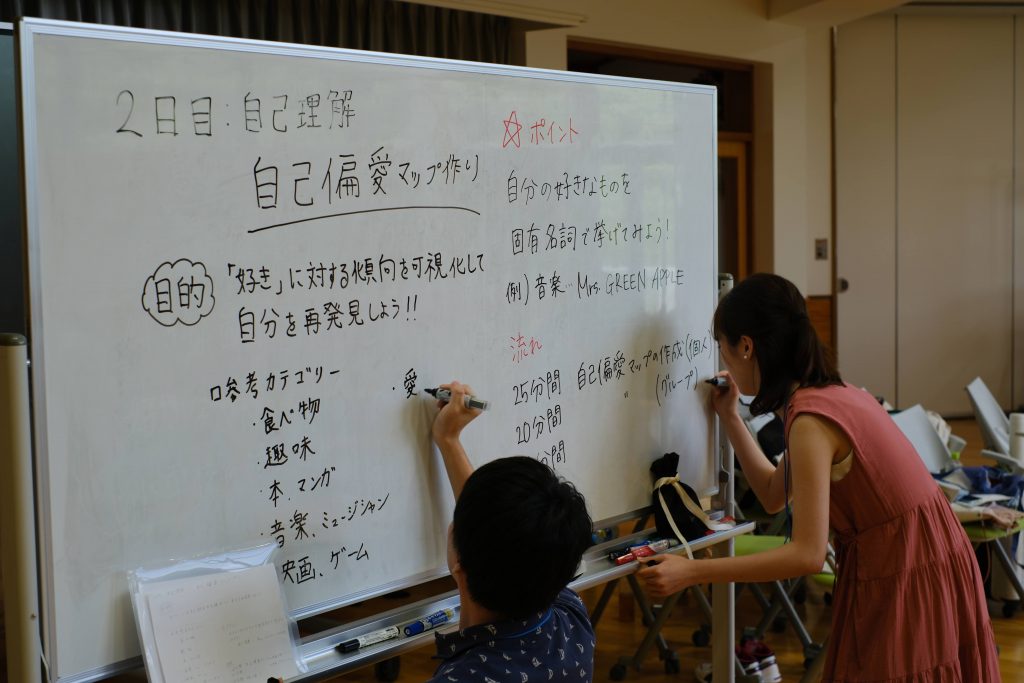 2日目:自己理解
自己偏愛マップ作り
目的
「好き」に対する傾向を可視化して
自分を再発見しよう!!
参考カテゴリー
・食べ物
・趣味
・本、マンガ
・音楽、ミュージシャン
映画、ゲーム
・愛
☆ポイント
自分の好きなものを
固有名詞で挙げてみよう!
例)音楽… Mrs. GREEN APPLE
流れ
25分間 自己偏愛マップの作成(個人)
20分間 〃 (グループ)
分間